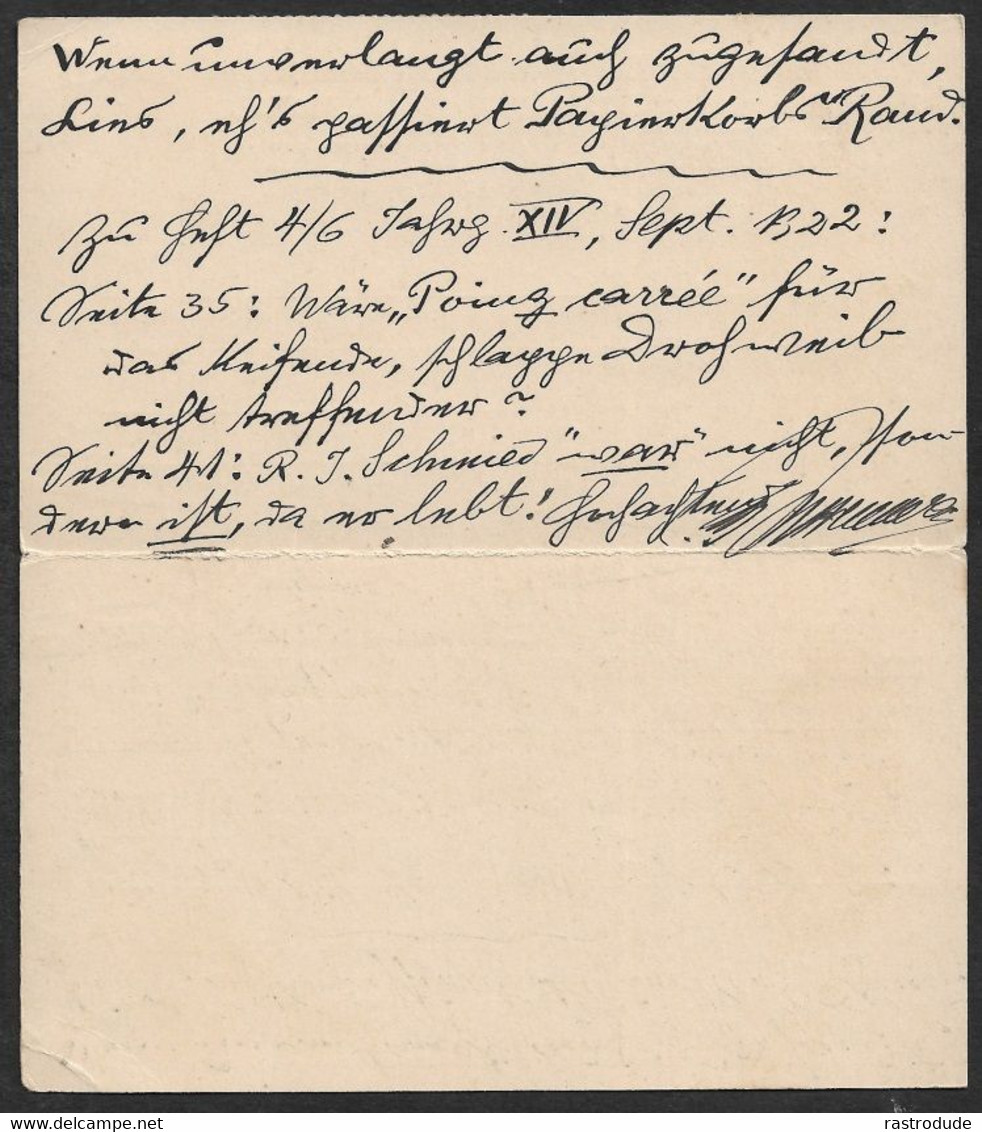 Wenn unverlangt auch zugesandt,
Lies, eh's passiert Papierkorbs Rand.
Zu Heft 4/6 Jahrg. XIV, Sept. 1922:
Seite 35: Wäre „Poing carrée" für
das Keifende, schlappe Drohweib
nicht treffender?
Seite 41: R. J. Schmied "war" nicht, son
dern ist, da er lebt! Hochachtend
rastrodude